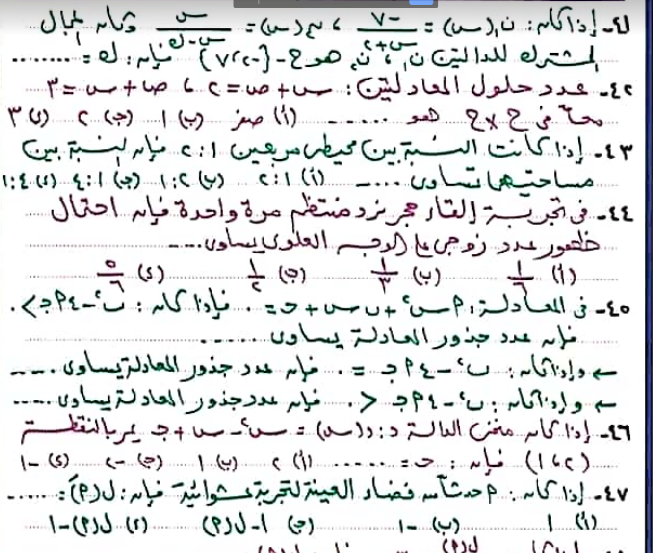 ٤١- إذا كان: ن١(س) = -٧/(س+٢) ، ن٢(س) = س/(س-ك) وكان المجال
المشترك للدالتين ن١، ن٢ هو ح - {-٢، ٧} فإن: ك = ........
٤٢- عدد حلول المعادلتين: س + ص = ٢ ، ص + س = ٣
معاً فى ح × ح هو ...... (أ) صفر (ب) ١ (ج) ٢ (د) ٣
٤٣- إذا كانت النسبة بين محيطى مربعين ١ : ٢ فإن النسبة بين
مساحتيهما تساوى ..... (أ) ١ : ٢ (ب) ٢ : ١ (ج) ٤ : ١ (د) ١ : ٤
٤٤- فى تجربة إلقاء حجر نرد منتظم مرة واحدة فإن احتمال
ظهور عدد زوجى على الوجه العلوى يساوى....
(أ) ١/٦ (ب) ١/٣ (ج) ١/٢ (د) ٥/٦
٤٥- فى المعادلة: ٢م س + ب س + ج = ٠ فإذا كان: ب٢ - ٤ م ج > ٠
فإن عدد جذور المعادلة يساوى ......
← وإذا كان: ب٢ - ٤ م ج = ٠ فإن عدد جذور المعادلة يساوى.....
← وإذا كان: ب٢ - ٤ م ج < ٠ فإن عدد جذور المعادلة يساوى.....
٤٦- إذا كان منحنى الدالة د: د(س) = س٢ - س + ج يمر بالنقطة
(٢، ١) فإن: ج = ...... (أ) ٢ (ب) ١ (ج) -٢ (د) -١
٤٧- إذا كان: م حدثاً من فضاء العينة لتجربة عشوائية فإن: ل(م) = .....
(أ) ١ (ب) -١ (ج) ١ - ل(م) (د) ل(م) - ١